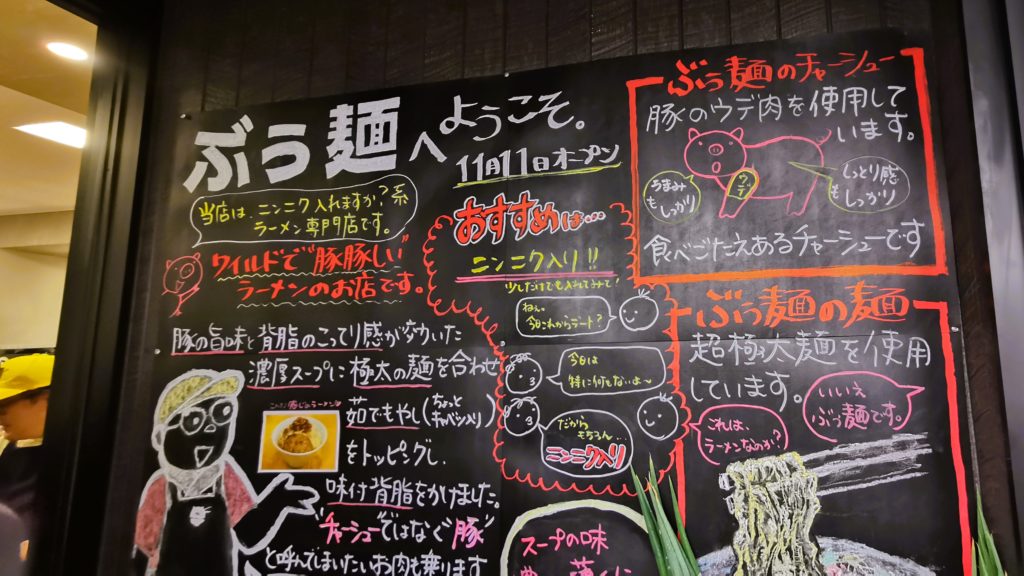 ぶう麺へようこそ。
11月11日オープン
当店は、ニンニク入れますか?系
ラーメン専門店です。
ワイルドで"豚豚しい"
ラーメンのお店です。
豚の旨味と背脂のこってり感が効いた
濃厚スープに極太の麺を合わせ
茹でもやし(なんと キャベツ入り)
をトッピングし、
味付背脂をかけました。
"チャーシュー"ではなく"豚"
と呼んでしまいたいお肉も乗ります
おすすめは…
ニンニク入り!!
少しだけでも入れてみて!
ねぇ、
今日これからデート?
今日は
特に何もないよ〜
だから
もちろん…
ニンニク入り
スープの味
ぶう麺のチャーシュー
豚のウデ肉を使用して
います。
うまみも
しっかり
ウデ
しっとり感
も
しっかり
食べごたえあるチャーシューです
ぶぅ麺の麺
超極太麺を使用
しています。
これは、
ラーメンなのか?
いいえ
ぶぅ麺です。